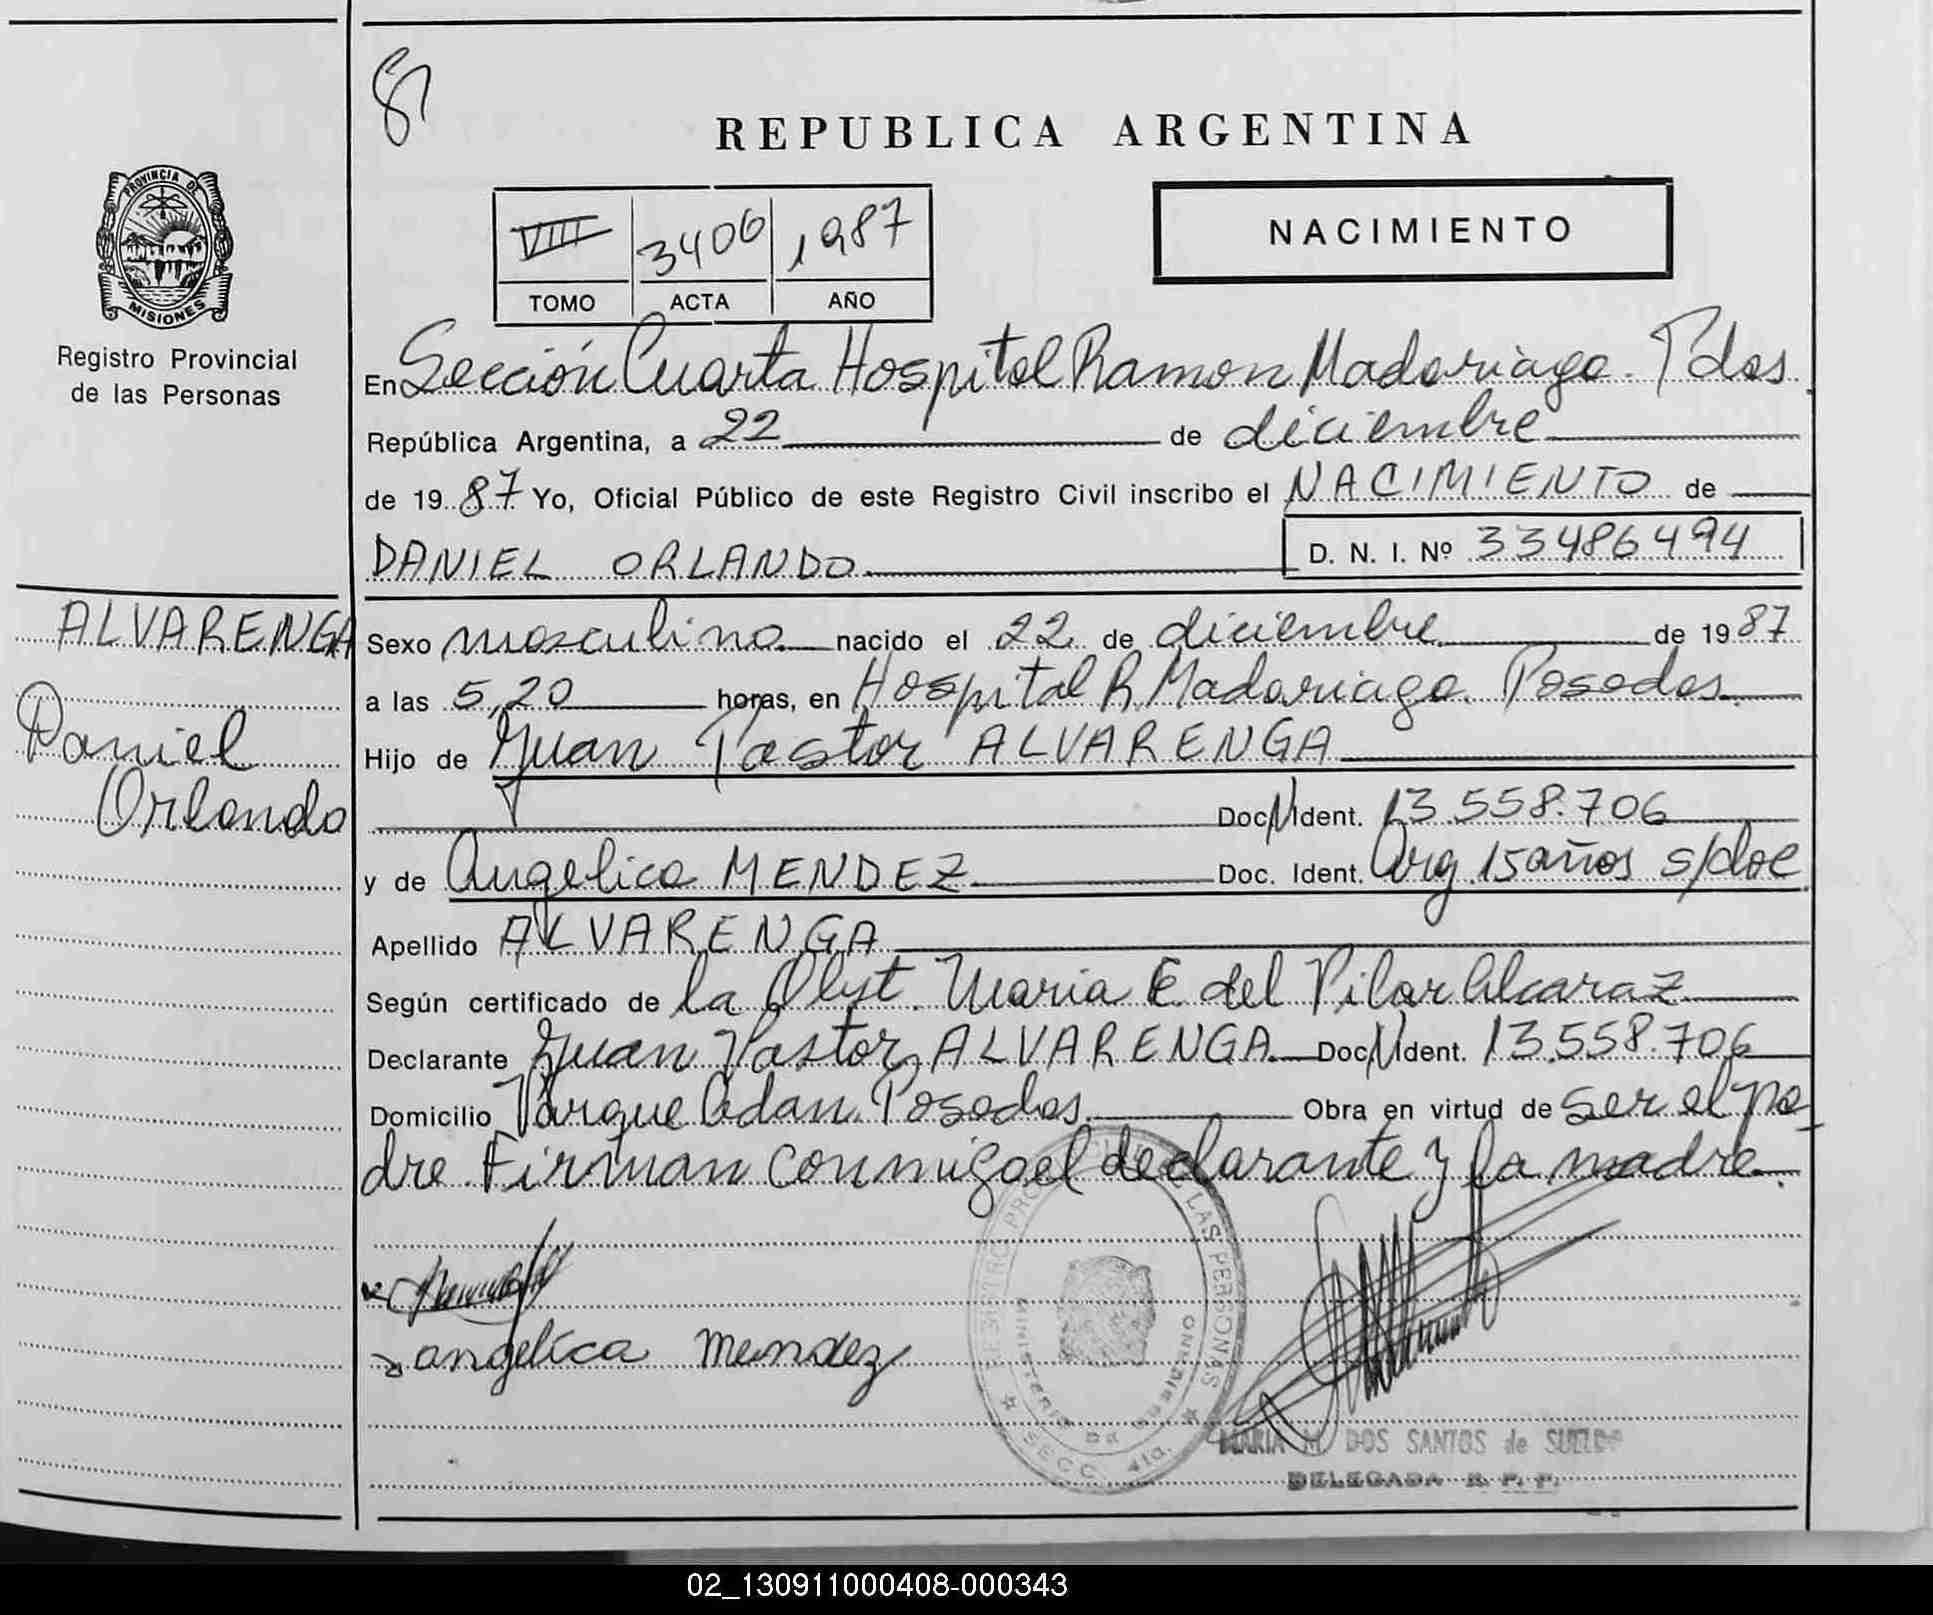 87
REPUBLICA ARGENTINA
PROVINCIA DE
MISIONES
Registro Provincial
de las Personas
VIII 3406 1987
TOMO ACTA AÑO
NACIMIENTO
En Sección Cuarta Hospital Ramon Madariaga. Pdas
República Argentina, a 22 de diciembre
de 19 87 Yo, Oficial Público de este Registro Civil inscribo el NACIMIENTO de
DANIEL ORLANDO D. N. I. Nº 33486494
ALVARENGA
Daniel
Orlando
Sexo masculino nacido el 22 de diciembre de 19 87
a las 5,20 horas, en Hospital R Madariaga. Posadas
Hijo de Juan Pastor ALVARENGA
Doc N Ident. 13.558.706
y de Angelica MENDEZ Doc. Ident. Arg. 15 años s/doc
Apellido ALVARENGA
Según certificado de la Obst. Maria E. del Pilar Alcaraz
Declarante Juan Pastor ALVARENGA Doc N Ident. 13.558.706
Domicilio Parque Adan. Posadas Obra en virtud de ser el pa-
dre. Firman conmigo el declarante y la madre.
angelica mendez
LAS PERSONAS
SECC. 4ta.
MARIA M. DOS SANTOS de SUELDO
DELEGADA R. P. P.
02_130911000408-000343